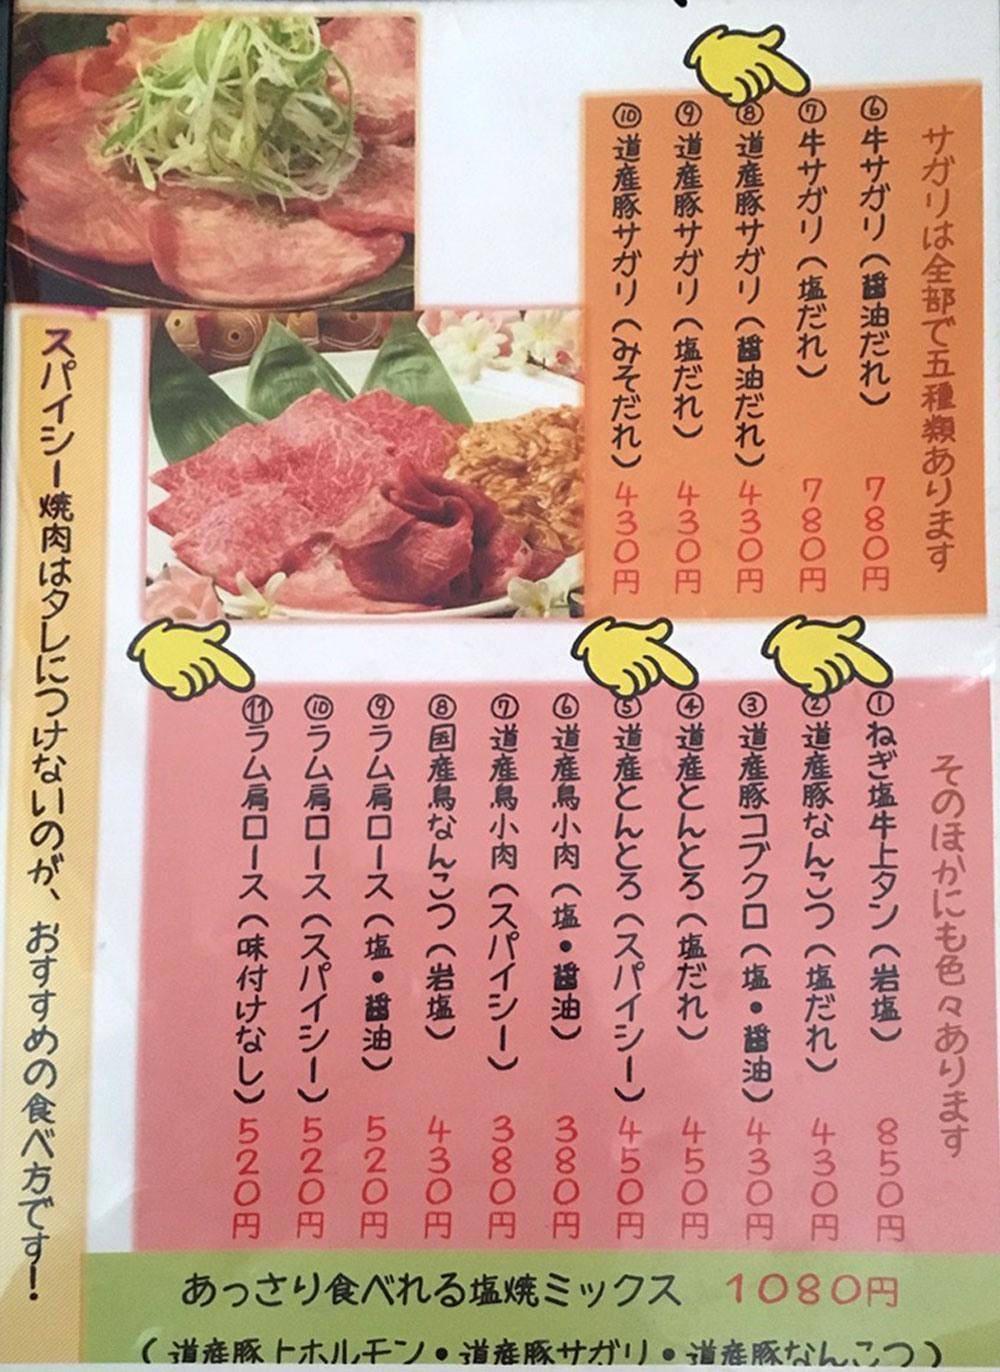 サガリは全部で五種類あります
⑥牛サガリ（醤油だれ） 780円
⑦牛サガリ（塩だれ） 780円
⑧道産豚サガリ（醤油だれ） 430円
⑨道産豚サガリ（塩だれ） 430円
⑩道産豚サガリ（みそだれ） 430円
そのほかにも色々あります
①ねぎ塩牛上タン（岩塩） 850円
②道産豚なんこつ（塩だれ） 430円
③道産豚コブクロ（塩・醤油） 430円
④道産とんとろ（塩だれ） 450円
⑤道産とんとろ（スパイシー） 450円
⑥道産鳥小肉（塩・醤油） 380円
⑦道産鳥小肉（スパイシー） 380円
⑧国産鳥なんこつ（岩塩） 430円
⑨ラム肩ロース（塩・醤油） 520円
⑩ラム肩ロース（スパイシー） 520円
⑪ラム肩ロース（味付けなし） 520円
スパイシー焼肉はタレにつけないのが、おすすめの食べ方です！
あっさり食べれる塩焼ミックス 1080円
（道産豚上ホルモン・道産豚サガリ・道産豚なんこつ）